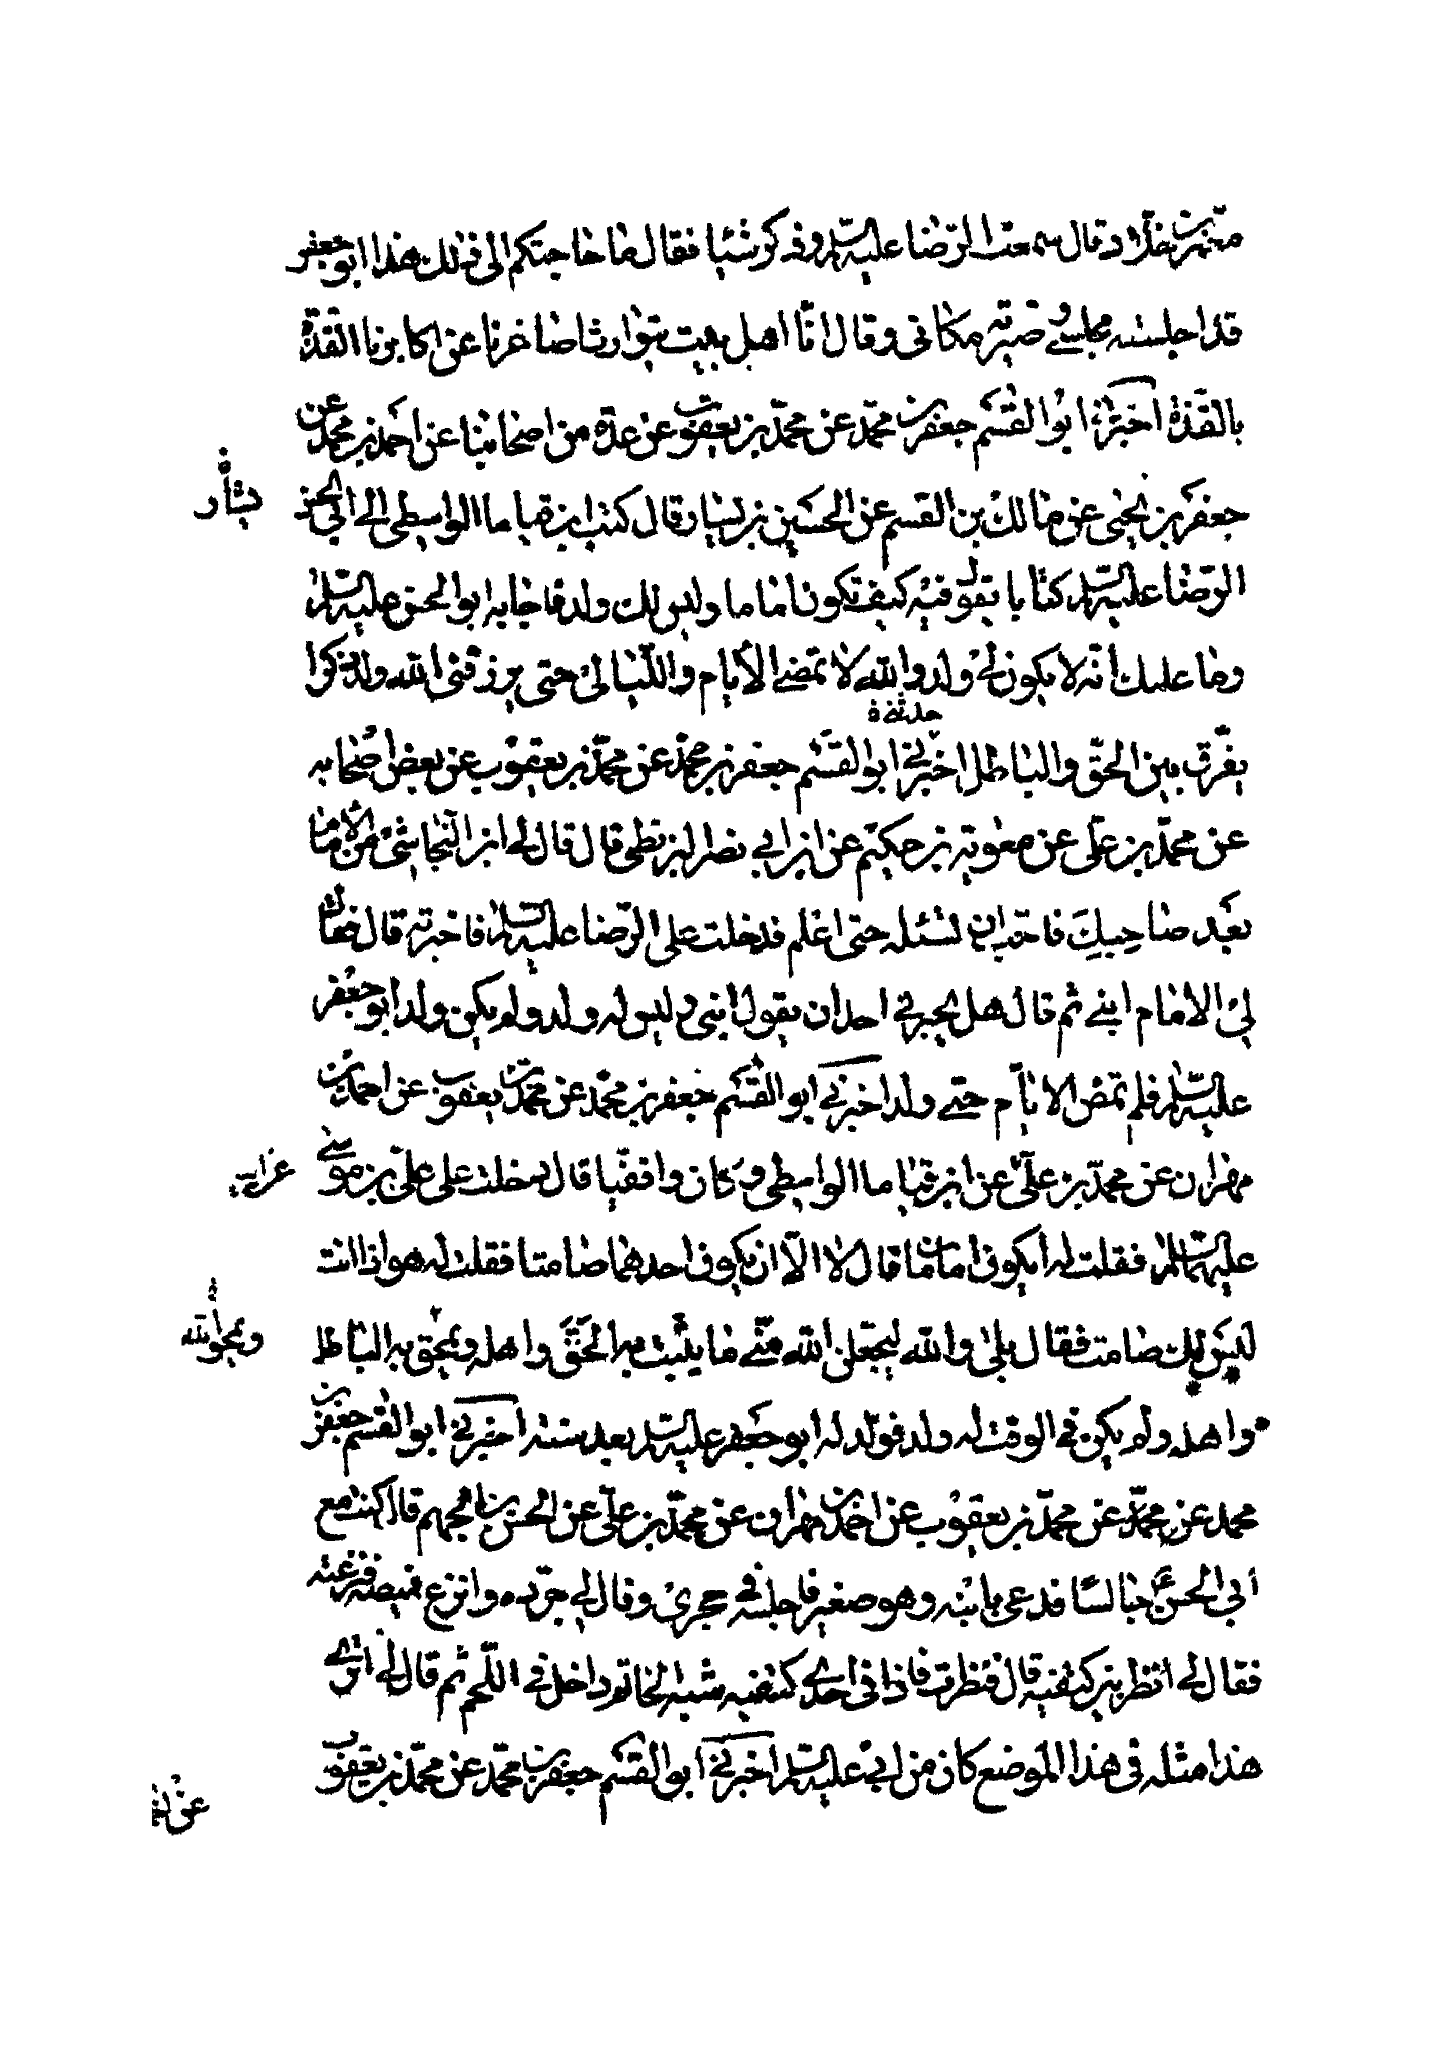 معمر بن خلاد قال سمعت الرضا عليه السلم وذكر شيئا فقال ما حاجتكم الى ذلك هذا ابو جعفر
قد اجلسته مجلسي وصيرته مكاني وقال انا اهل بيت يتوارث اصاغرنا عن اكابرنا القذة
بالقذة اخبرني ابو القسم جعفر بن محمد عن محمد بن يعقوب عن عدة من اصحابنا عن احمد بن محمد عن
جعفر بن يحيى عن مالك بن القسم عن الحسين بن يسار قال كتب ابن قياما الواسطي الى ابي الحسن
بشار
الرضا عليه السلم كتابا يقول فيه كيف تكون اماما وليس لك ولد فاجابه ابو الحسن عليه السلم
وما علمك انه لا يكون لي ولد والله لا تمضي الأيام والليالي حتى يرزقني الله ولدا ذكرا
حدثني
يفرق بين الحق والباطل اخبرني ابو القسم جعفر بن محمد عن محمد بن يعقوب عن بعض اصحابه
عن محمد بن علي عن معوية بن حكيم عن ابن ابي نصر البزنطي قال قال لي ابن النجاشي من الامام
بعد صاحبك فاحب ان تسئله حتى اعلم فدخلت على الرضا عليه السلم فاخبرته قال فقال
لي الامام ابني ثم قال هل يجترئ احد ان يقول ابني وليس له ولد ولم يكن ولد ابو جعفر
عليه السلم فلم تمض الايام حتى ولد اخبرني ابو القسم جعفر بن محمد عن محمد بن يعقوب عن احمد بن
مهران عن محمد بن علي عن ابن قياما الواسطي وكان واقفيا قال دخلت على علي بن موسى
عليهما السلم فقلت له ايكون امامان قال لا الا ان يكون احدهما صامتا فقلت له هو ذا انت
ليس لك صامت فقال بلى والله ليجعلن الله مني ما يثبت به الحق واهله ويمحق به الباطل
ويمحو الله
واهله ولم يكن في الوقت له ولد فولد له ابو جعفر عليه السلم بعد سنة اخبرني ابو القسم جعفر بن
محمد عن محمد عن محمد بن يعقوب عن احمد بن مهران عن محمد بن علي عن الحسن بن الجهم قال كنت مع
ابي الحسن ع جالسا فدعى بابنه وهو صغير فاجلسه في حجري وقال لي جرده وانزع قميصه فنزعته
فقال لي انظر بين كتفيه قال فنظرت فاذا في احدى كتفيه شبه الخاتم داخل في اللحم ثم قال لي اترى
هذا مثله في هذا الموضع كان من ابي عليه السلم اخبرني ابو القسم جعفر بن محمد عن محمد بن يعقوب